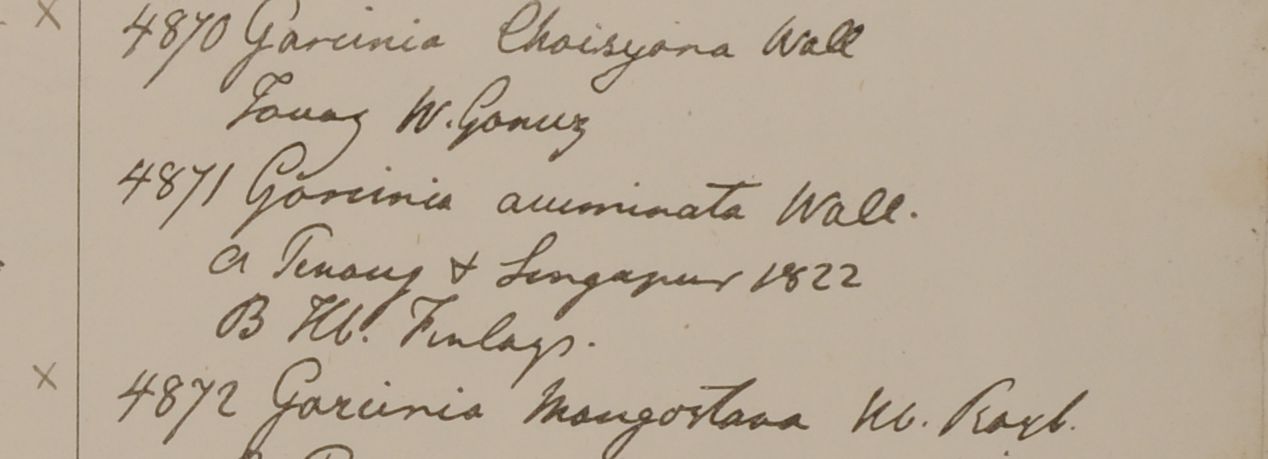 × 4870 Garcinia Choisyana Wall
Tavoy W. Gomez
4871 Garcinia acuminata Wall.
a Penang & Singapur 1822
B Hb. Finlays.
× 4872 Garcinia Mangostana Hb. Roxb.